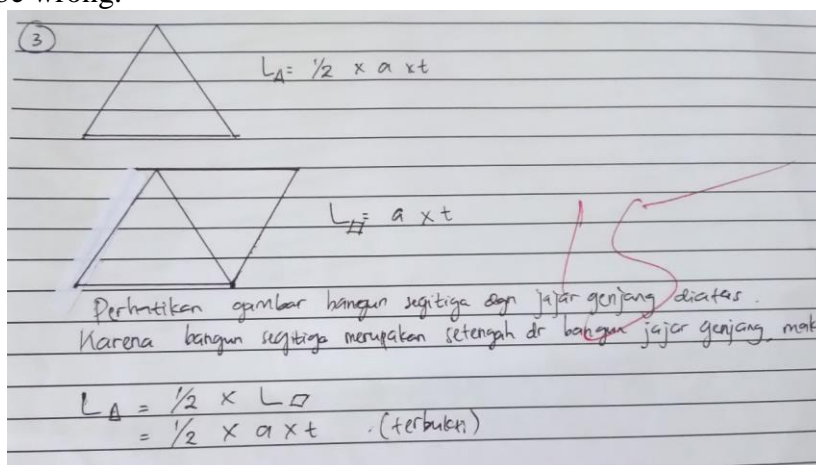 be wrong.
3
L△ = 1/2 x a x t
L▱ = a x t
15
Perhatikan gambar bangun segitiga dgn jajar genjang diatas.
Karena bangun segitiga merupakan setengah dr bangun jajar genjang, mak
L△ = 1/2 x L▱
= 1/2 x a x t . (terbukti)